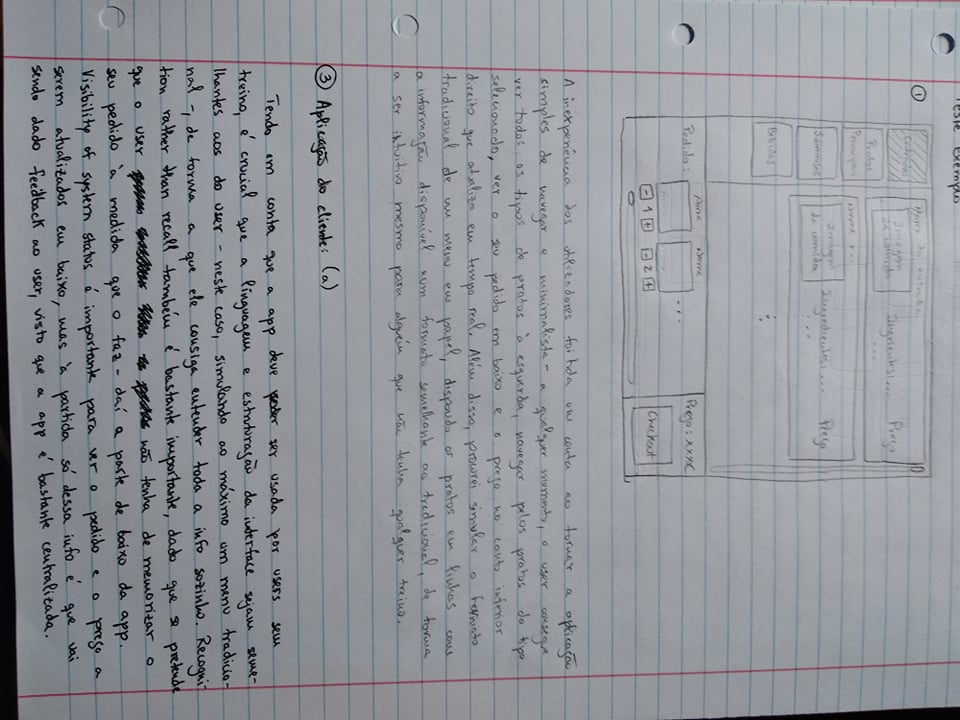 Teste Exemplo
①
Entradas
Pratos
Principais
Sobremesas
Bebidas
Nome da entrada
Imagem
da comida
Ingredientes:...
...
Preço
Nome ...
Imagem
da comida
Ingredientes:...
...
Preço
Pedido:
Nome
Nome
...
- 1 +
- 2 +
Preço: xxx€
Checkout
A inexperiência dos utilizadores foi tida em conta ao tornar a aplicação
simples de navegar e minimalista - a qualquer momento, o user consegue
ver todos os tipos de pratos à esquerda, navegar pelos pratos do tipo
selecionado, ver o seu pedido em baixo e o preço no canto inferior
direito que atualiza em tempo real. Além disso, procurei simular o formato
tradicional de um menu em papel, dispondo os pratos em linhas com
a informação disponível num formato semelhante ao tradicional, de forma
a ser intuitivo mesmo para alguém que não tenha qualquer treino.
③ Aplicação do cliente: (a)
Tendo em conta que a app deve poder ser usada por users sem
treino, é crucial que a linguagem e estruturação da interface sejam seme-
lhantes aos do user - neste caso, simulando ao máximo um menu tradicio-
nal -, de forma a que ele consiga entender toda a info sozinho. Recogni-
tion rather than recall também é bastante importante, dado que se pretende
que o user não tenha de memorizar o
seu pedido à medida que o faz - daí a parte de baixo da app.
Visibility of system status é importante para ver o pedido e o preço a
serem atualizados em baixo, mas à partida só dessa info é que vai
sendo dado feedback ao user, visto que a app é bastante centralizada.